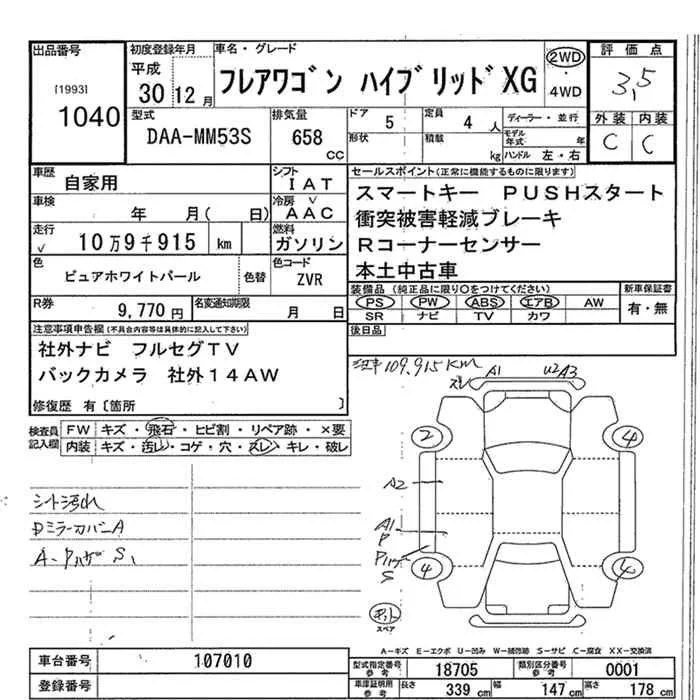 出品番号
[1993]
1040
初度登録年月
平成
30 12 月
車名・グレード
フレアワゴン ハイブリッド XG
2WD
・
4WD
評価点
3.5
外装 内装
C C
型式
DAA-MM53S
排気量
658
CC
ドア
5
定員
4 人
形状
積載
kg
ディーラー・並行
モデル年式 年
ハンドル 左・右
車歴
自家用
シフト
IAT
車検
年 月( 日)
冷房 ∨
AAC
走行
∨
10万9千915 km
燃料
ガソリン
色
ピュアホワイトパール
色替
色コード
ZVR
R券
9,770 円
名変通知期限
月 日
セールスポイント(正常に機能するものに限ります)
スマートキー PUSHスタート
衝突被害軽減ブレーキ
Rコーナーセンサー
本土中古車
装備品 (純正品に限り○をつけてください)
新車保証書
PS PW ABS エアB AW
SR ナビ TV カワ
有・無
後日品
注意事項申告欄(不具合内容等は具体的に記入して下さい)
社外ナビ フルセグTV
バックカメラ 社外14AW
修復歴 有〔箇所 〕
検査員記入欄
FW キズ・飛石・ヒビ割・リペア跡・×要
内装 キズ・汚レ・コゲ・穴・スレ・キレ・破レ
シート汚れ
DミラーカバーA
109.915KM
A1
U2 A3
2
4
A2
A1
P
S
4
スペア
A-キズ E-エクボ U-凹み W-補修跡 S-サビ C-腐食 XX-交換済
車台番号
107010
登録番号
型式指定番号
参考
18705
類別区分番号
参考
0001
車庫証明用
参考
長さ
339 cm
幅
147 cm
高さ
178 cm